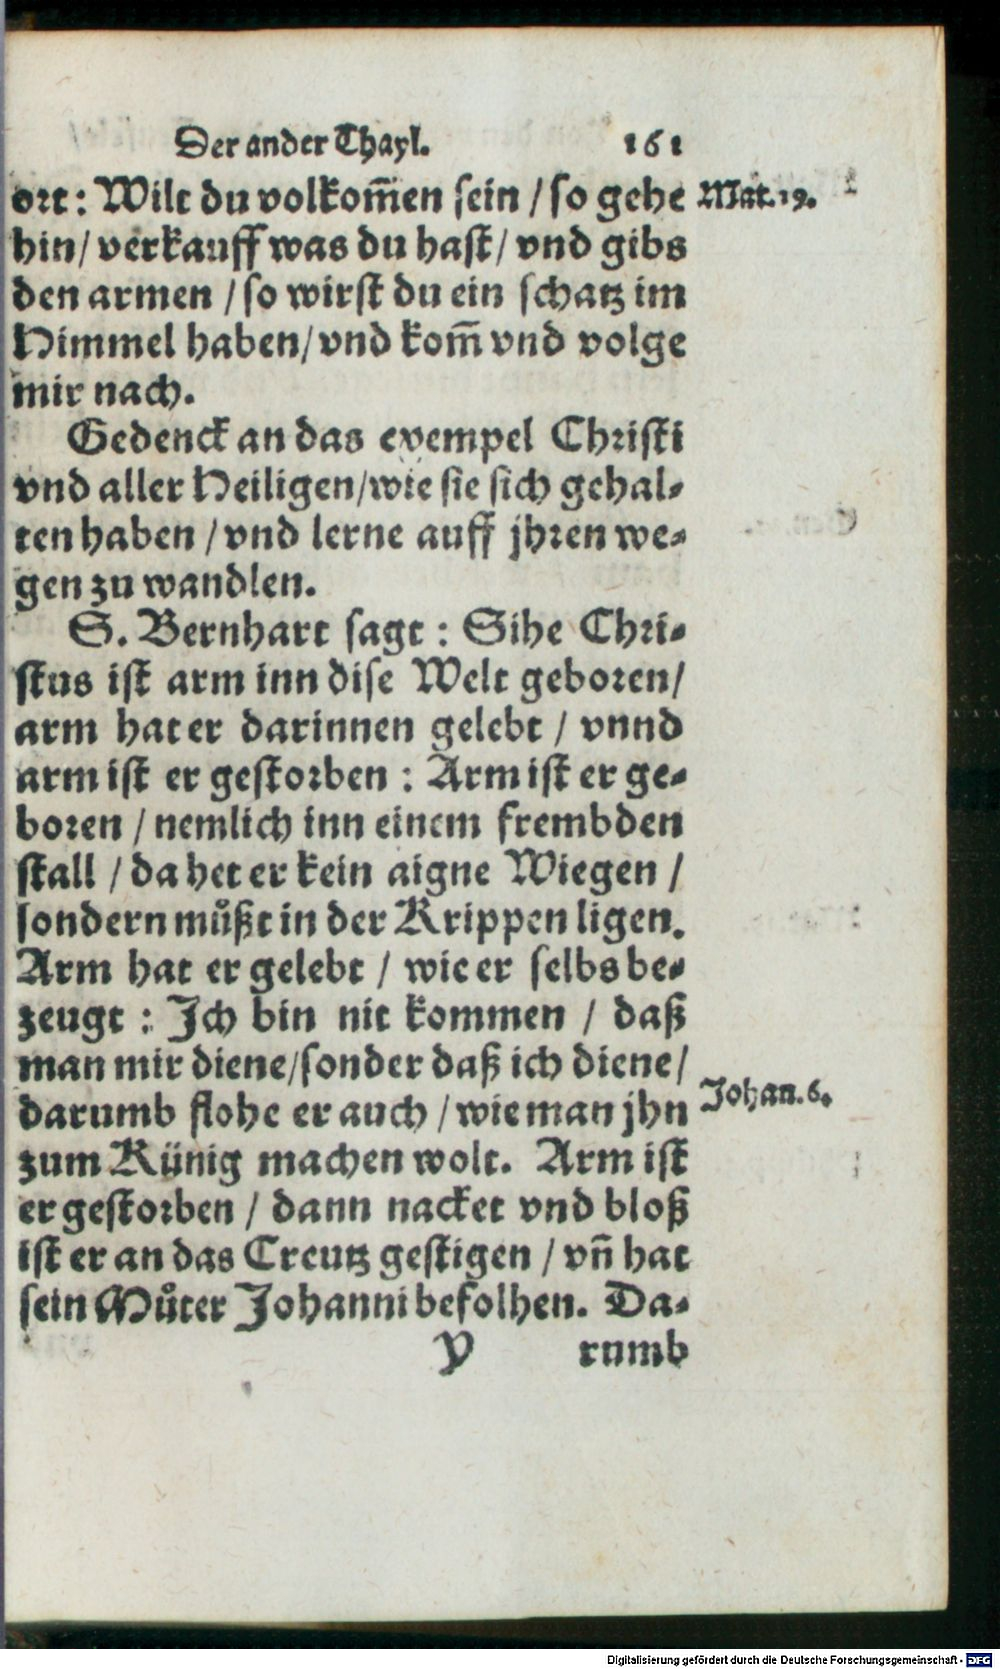 Der ander Thayl. 161
ort: Wilt du volkom̃en sein / so gehe Mat. 19.
hin / verkauff was du hast / vnd gibs
den armen / so wirst du ein schatz im
Himmel haben / vnd kom̃ vnd volge
mir nach.
Gedenck an das exempel Christi
vnd aller Heiligen / wie sie sich gehal-
ten haben / vnd lerne auff jhren we-
gen zu wandlen.
S. Bernhart sagt : Sihe Chri-
stus ist arm inn dise Welt geboren /
arm hat er darinnen gelebt / vnnd
arm ist er gestorben : Arm ist er ge-
boren / nemlich inn einem frembden
stall / da het er kein aigne Wiegen /
sondern můßt in der Krippen ligen.
Arm hat er gelebt / wie er selbs be-
zeugt : Ich bin nit kommen / daß
man mir diene / sonder daß ich diene /
darumb flohe er auch / wie man jhn Johan. 6.
zum Künig machen wolt. Arm ist
er gestorben / dann nacket vnd bloß
ist er an das Creutz gestigen / vñ hat
sein Můter Johanni befolhen. Da-
Y rumb
Digitalisierung gefördert durch die Deutsche Forschungsgemeinschaft - DFG